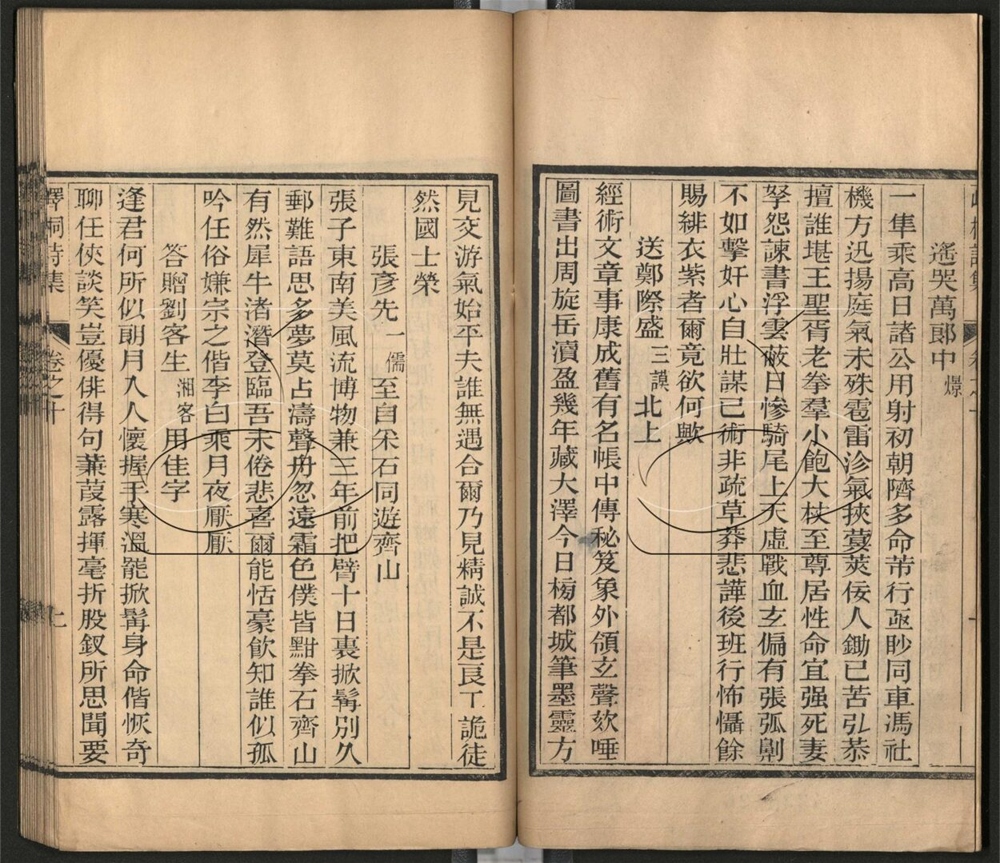 遙哭萬郎中燝
一隼乘高日諸公用射初朝隮多命芾行亟眇同車馮社
機方迅揚庭氣未殊雹雷沴氣狹蓂莢佞人鋤已苦弘恭
擅誰堪王聖胥老拳羣小飽大杖至尊居性命宜强死妻
孥怨諫書浮雲蔽日慘騎尾上天虛戰血玄偏有張弧剮
不如擊奸心自壯謀已術非疏草莽悲譁後班行怖懾餘
賜緋衣紫者爾竟欲何歟
送鄭際盛三謨北上
經術文章事康成舊有名帳中傳秘笈象外領玄聲欬唾
圖書出周旋岳瀆盈幾年藏大澤今日楊都城筆墨靈方
見交游氣始平夫誰無遇合爾乃見精誠不是良工詭徒
然國士榮
張彥先一儒至自采石同遊齊山
張子東南美風流博物兼三年前把臂十日裏掀髯別久
郵難語思多夢莫占濤聲舟忽遠霜色僕皆黚拳石齊山
有然犀牛渚潛登臨吾未倦悲喜爾能恬豪飲知誰似孤
吟任俗嫌宗之偕李白乘月夜厭厭
答贈劉客生湘客用佳字
逢君何所似朗月入人懷握手寒溫罷掀髯身命偕恢奇
聊任俠談笑豈優俳得句蒹葭露揮毫折股釵所思聞要
嶧桐詩集 卷之十 七